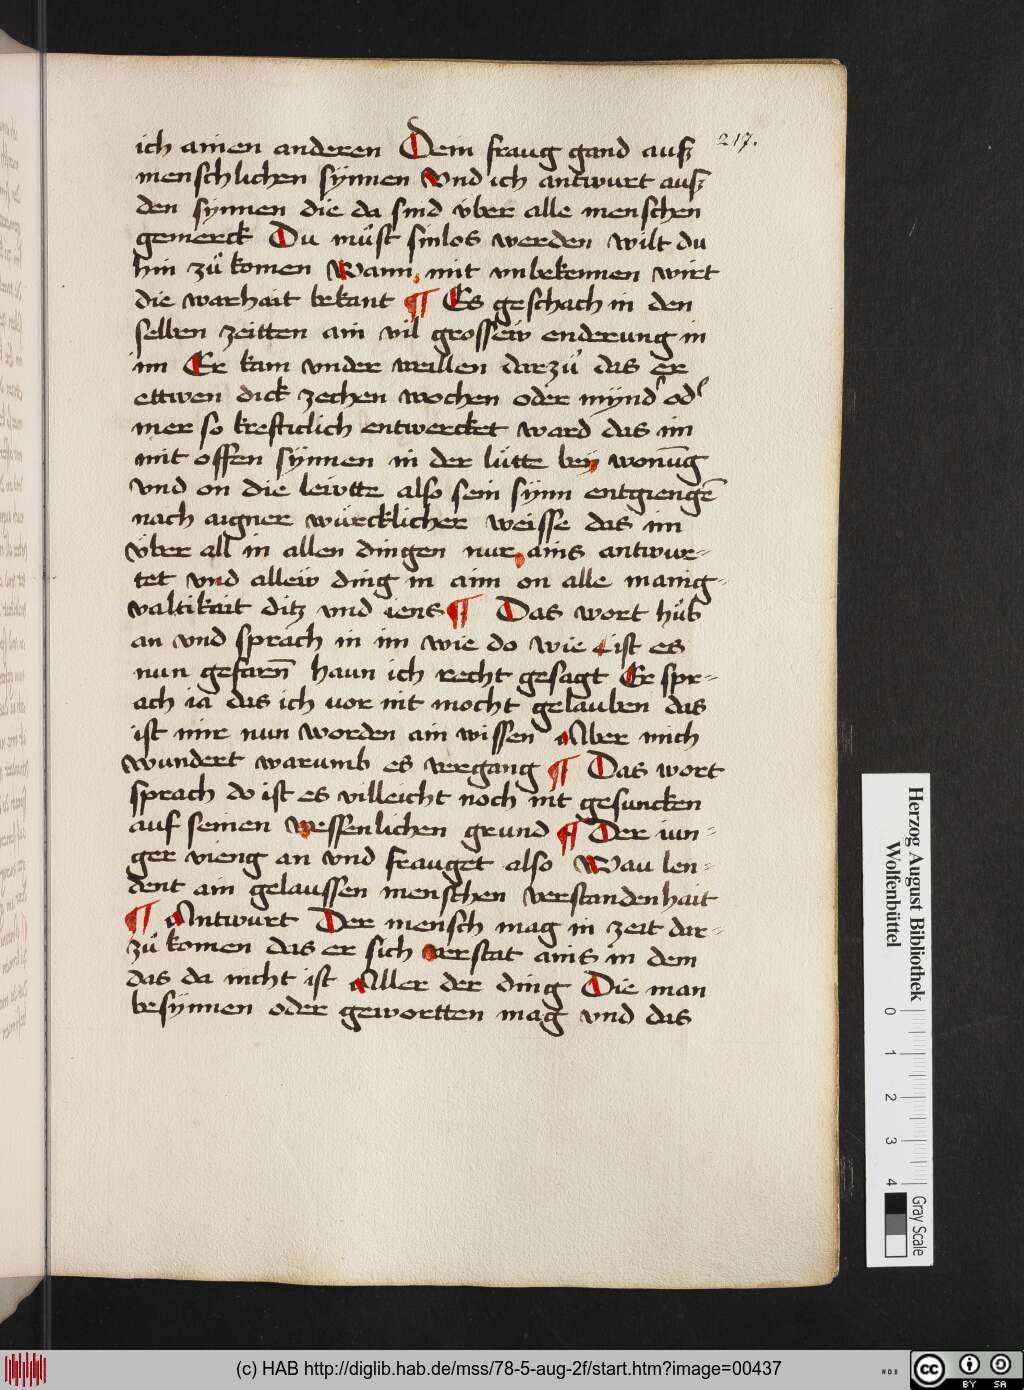 ich ainen anderen Dein fraug gand auß
217.
menschlichen synnen Vnd ich antwurt auß
den synnen die da sind über alle menschen
gemerck Du müst sinlos werden wilt du
hin zuͦ komen Wann mit vnbekennen wirt
die warhait bekant ¶ Es geschach in den
selben zeitten ain vil grossew enderung in
im Er kam vnder weillen darzuͦ das er
ettwen dick zechen wochen oder mynd' od'
mer so krefticlich entwercket ward das im
mit offen synnen in der lütte bey wonūg
vnd on die lewtte also sein synn entgiengē
nach aigner würcklicher weisse das im
über all in allen dingen nur ains antwur-
tet vnd allew ding in aim on alle manig-
valtikait ditz vnd iens ¶ Das wort huͦb
an vnd sprach in im wie do wie ist es
nun gefarn̄ haun ich recht gesagt Er spr-
ach ia das ich vor nit mocht gelauben das
ist mir nun worden ain wissen Aber mich
wundert warumb es vergang ¶ Das wort
sprach do ist es villeicht noch nit gesuncken
auf seinen wessenlichen grund ¶ Der iun-
ger vieng an vnd frauget also Wau len-
dent ain gelaussen menschen verstandenhait
¶ Antwurt Der mensch mag in zeit dar-
zuͦ komen das er sich verstat ains in dem
das da nicht ist Aller der ding Die man
besynnen oder gewortten mag vnd das
Herzog August Bibliothek
Wolfenbüttel
0 1 2 3 4
Gray Scale
(c) HAB http://diglib.hab.de/mss/78-5-aug-2f/start.htm?image=00437
WDB
cc BY SA